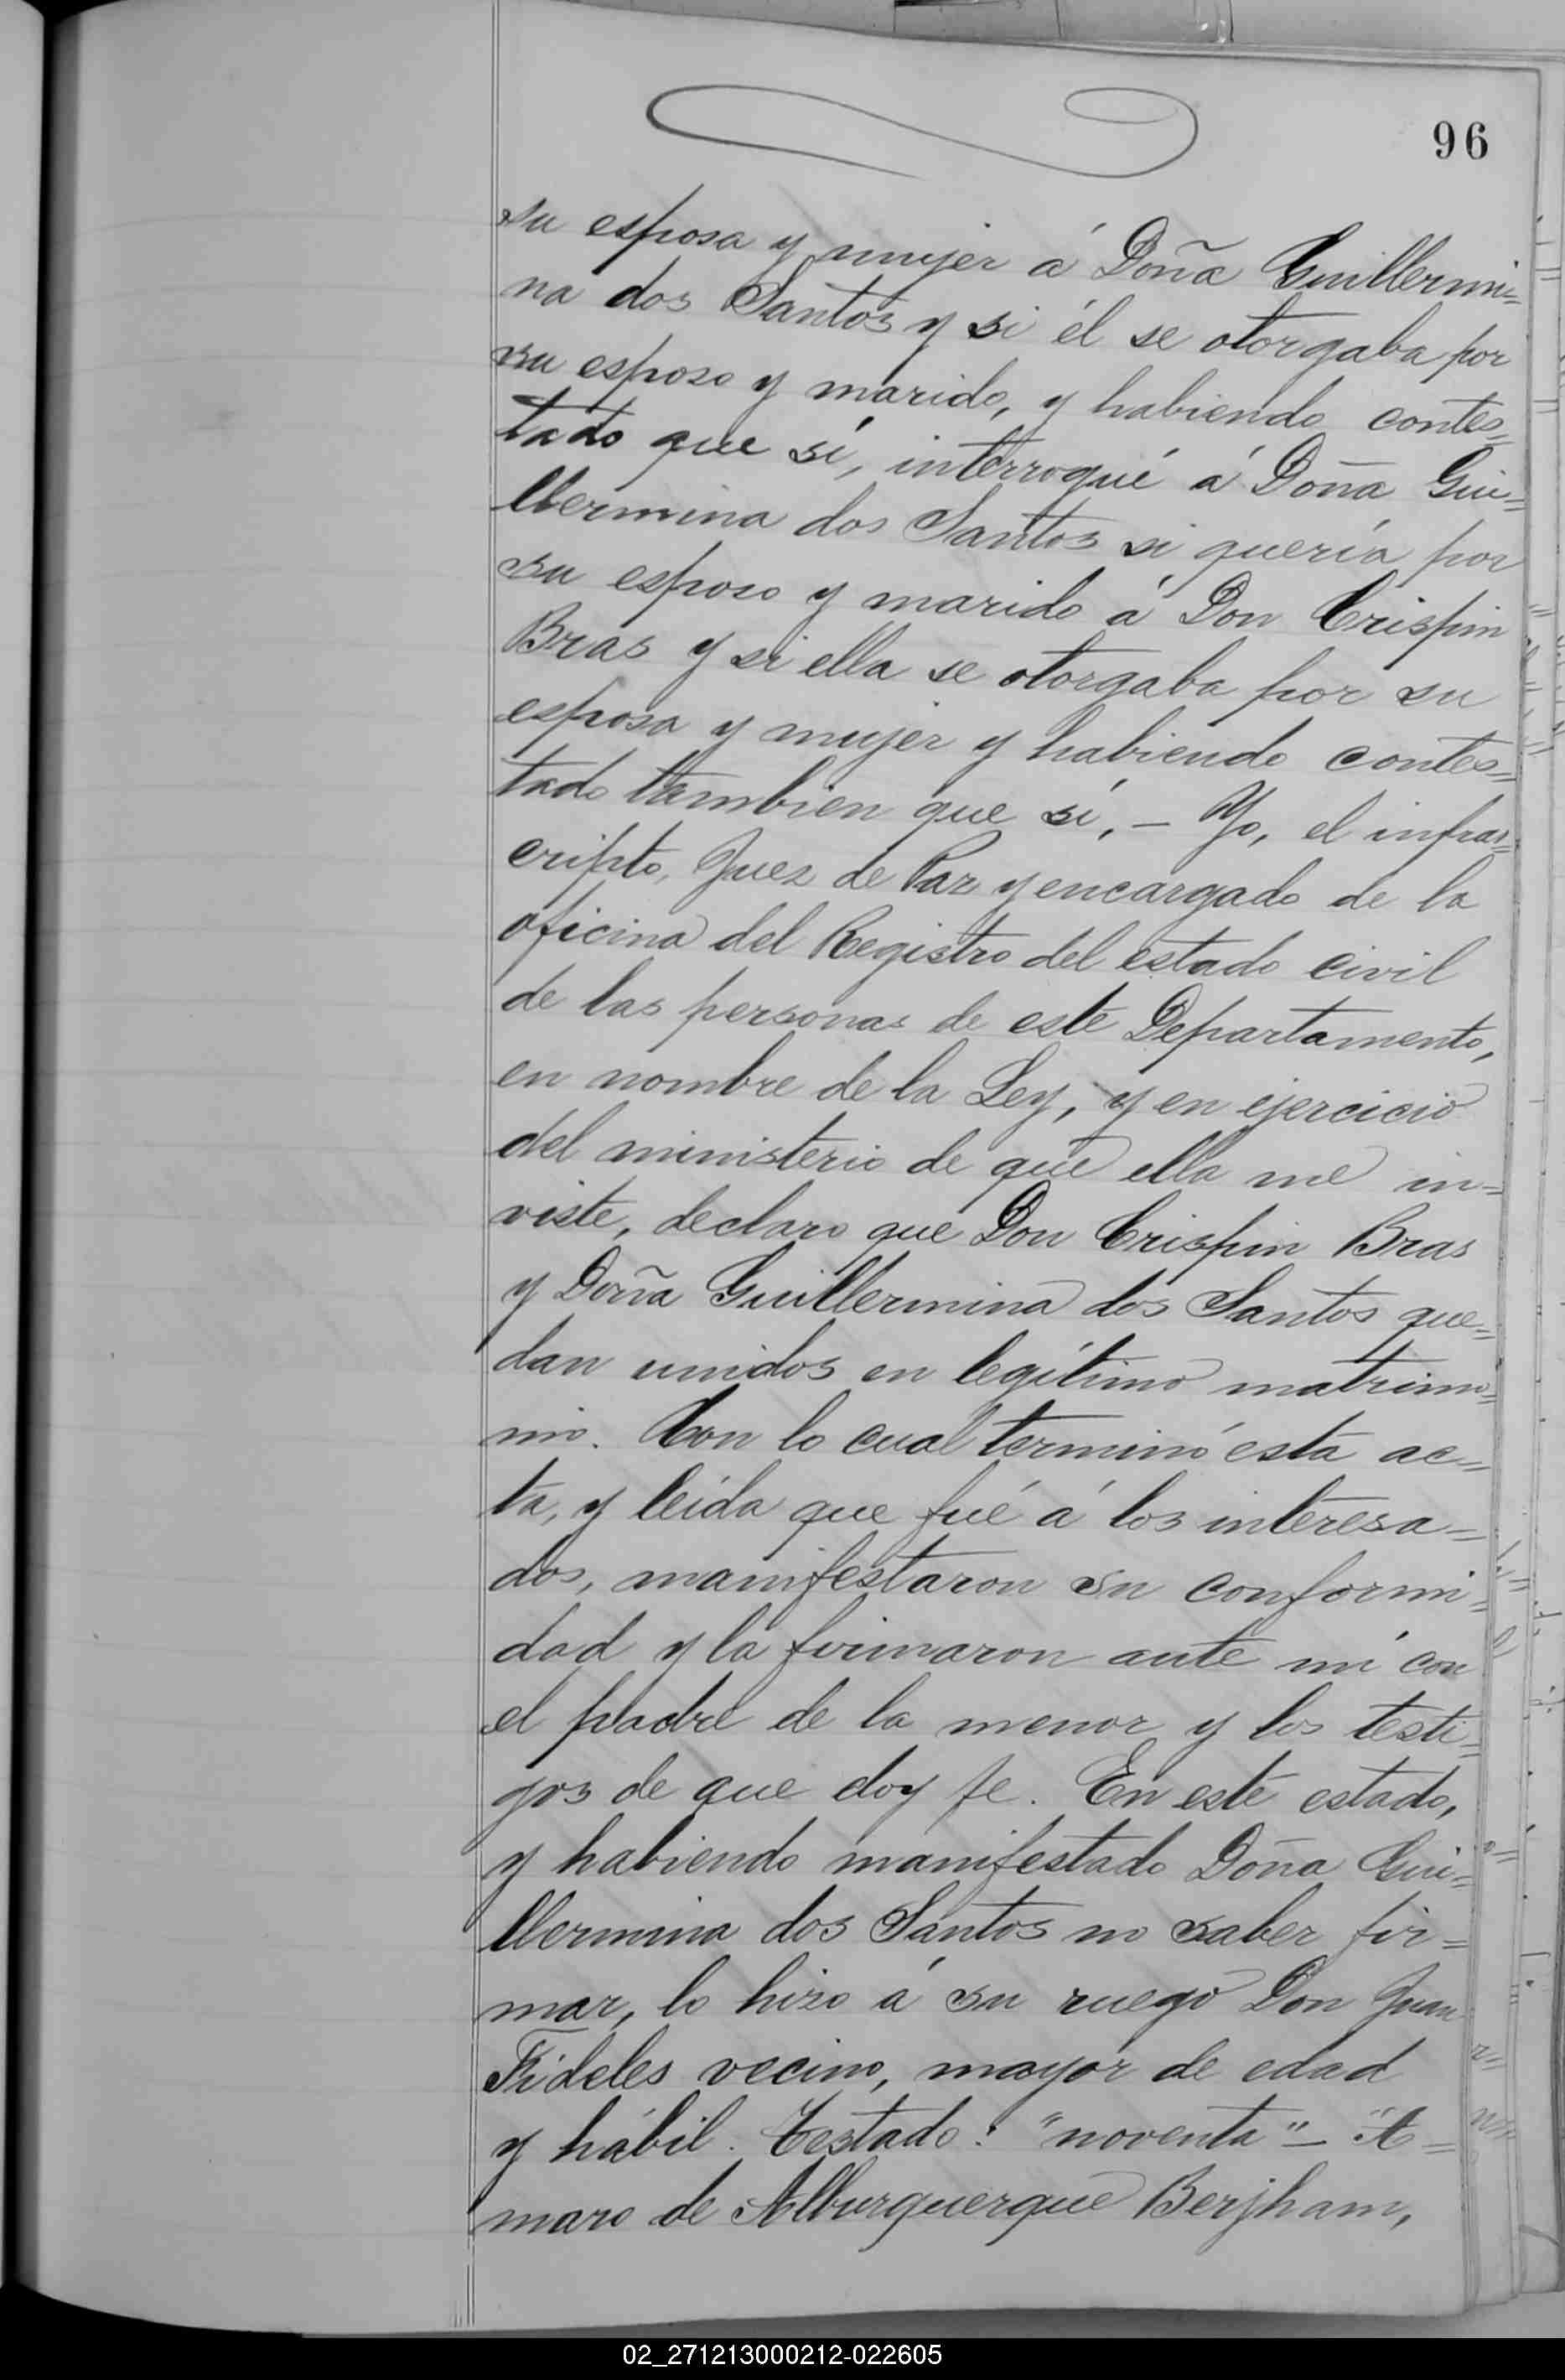 96
su esposa y mujer á Doña Guillermi=
na dos Santos y si él se otorgaba por
su esposo y marido, y habiendo contes=
tado que sí, interrogué á Doña Gui=
llermina dos Santos si quería por
su esposo y marido á Don Crispin
Bras y si ella se otorgaba por su
esposa y mujer y habiendo contes=
tado tambien que sí, – Yo, el infras=
cripto, Juez de Paz y encargado de la
oficina del Registro del estado civil
de las personas de este Departamento,
en nombre de la Ley, y en ejercicio
del ministerio de que ella me in=
viste, declaro que Don Crispin Bras
y Doña Guillermina dos Santos que=
dan unidos en legítimo matrimo=
nio. Con lo cual terminó esta ac=
ta, y leída que fué á los interesa=
dos, manifestaron su conformi=
dad y la firmaron ante mí con
el padre de la menor y los testi=
gos de que doy fe. En este estado,
y habiendo manifestado Doña Gui=
llermina dos Santos no saber fir=
mar, lo hizo á su ruego Don Juan
Fideles vecino, mayor de edad
y hábil. Testado: "noventa" – "A=
maro de Alburguerque Berjham,
02_271213000212-022605